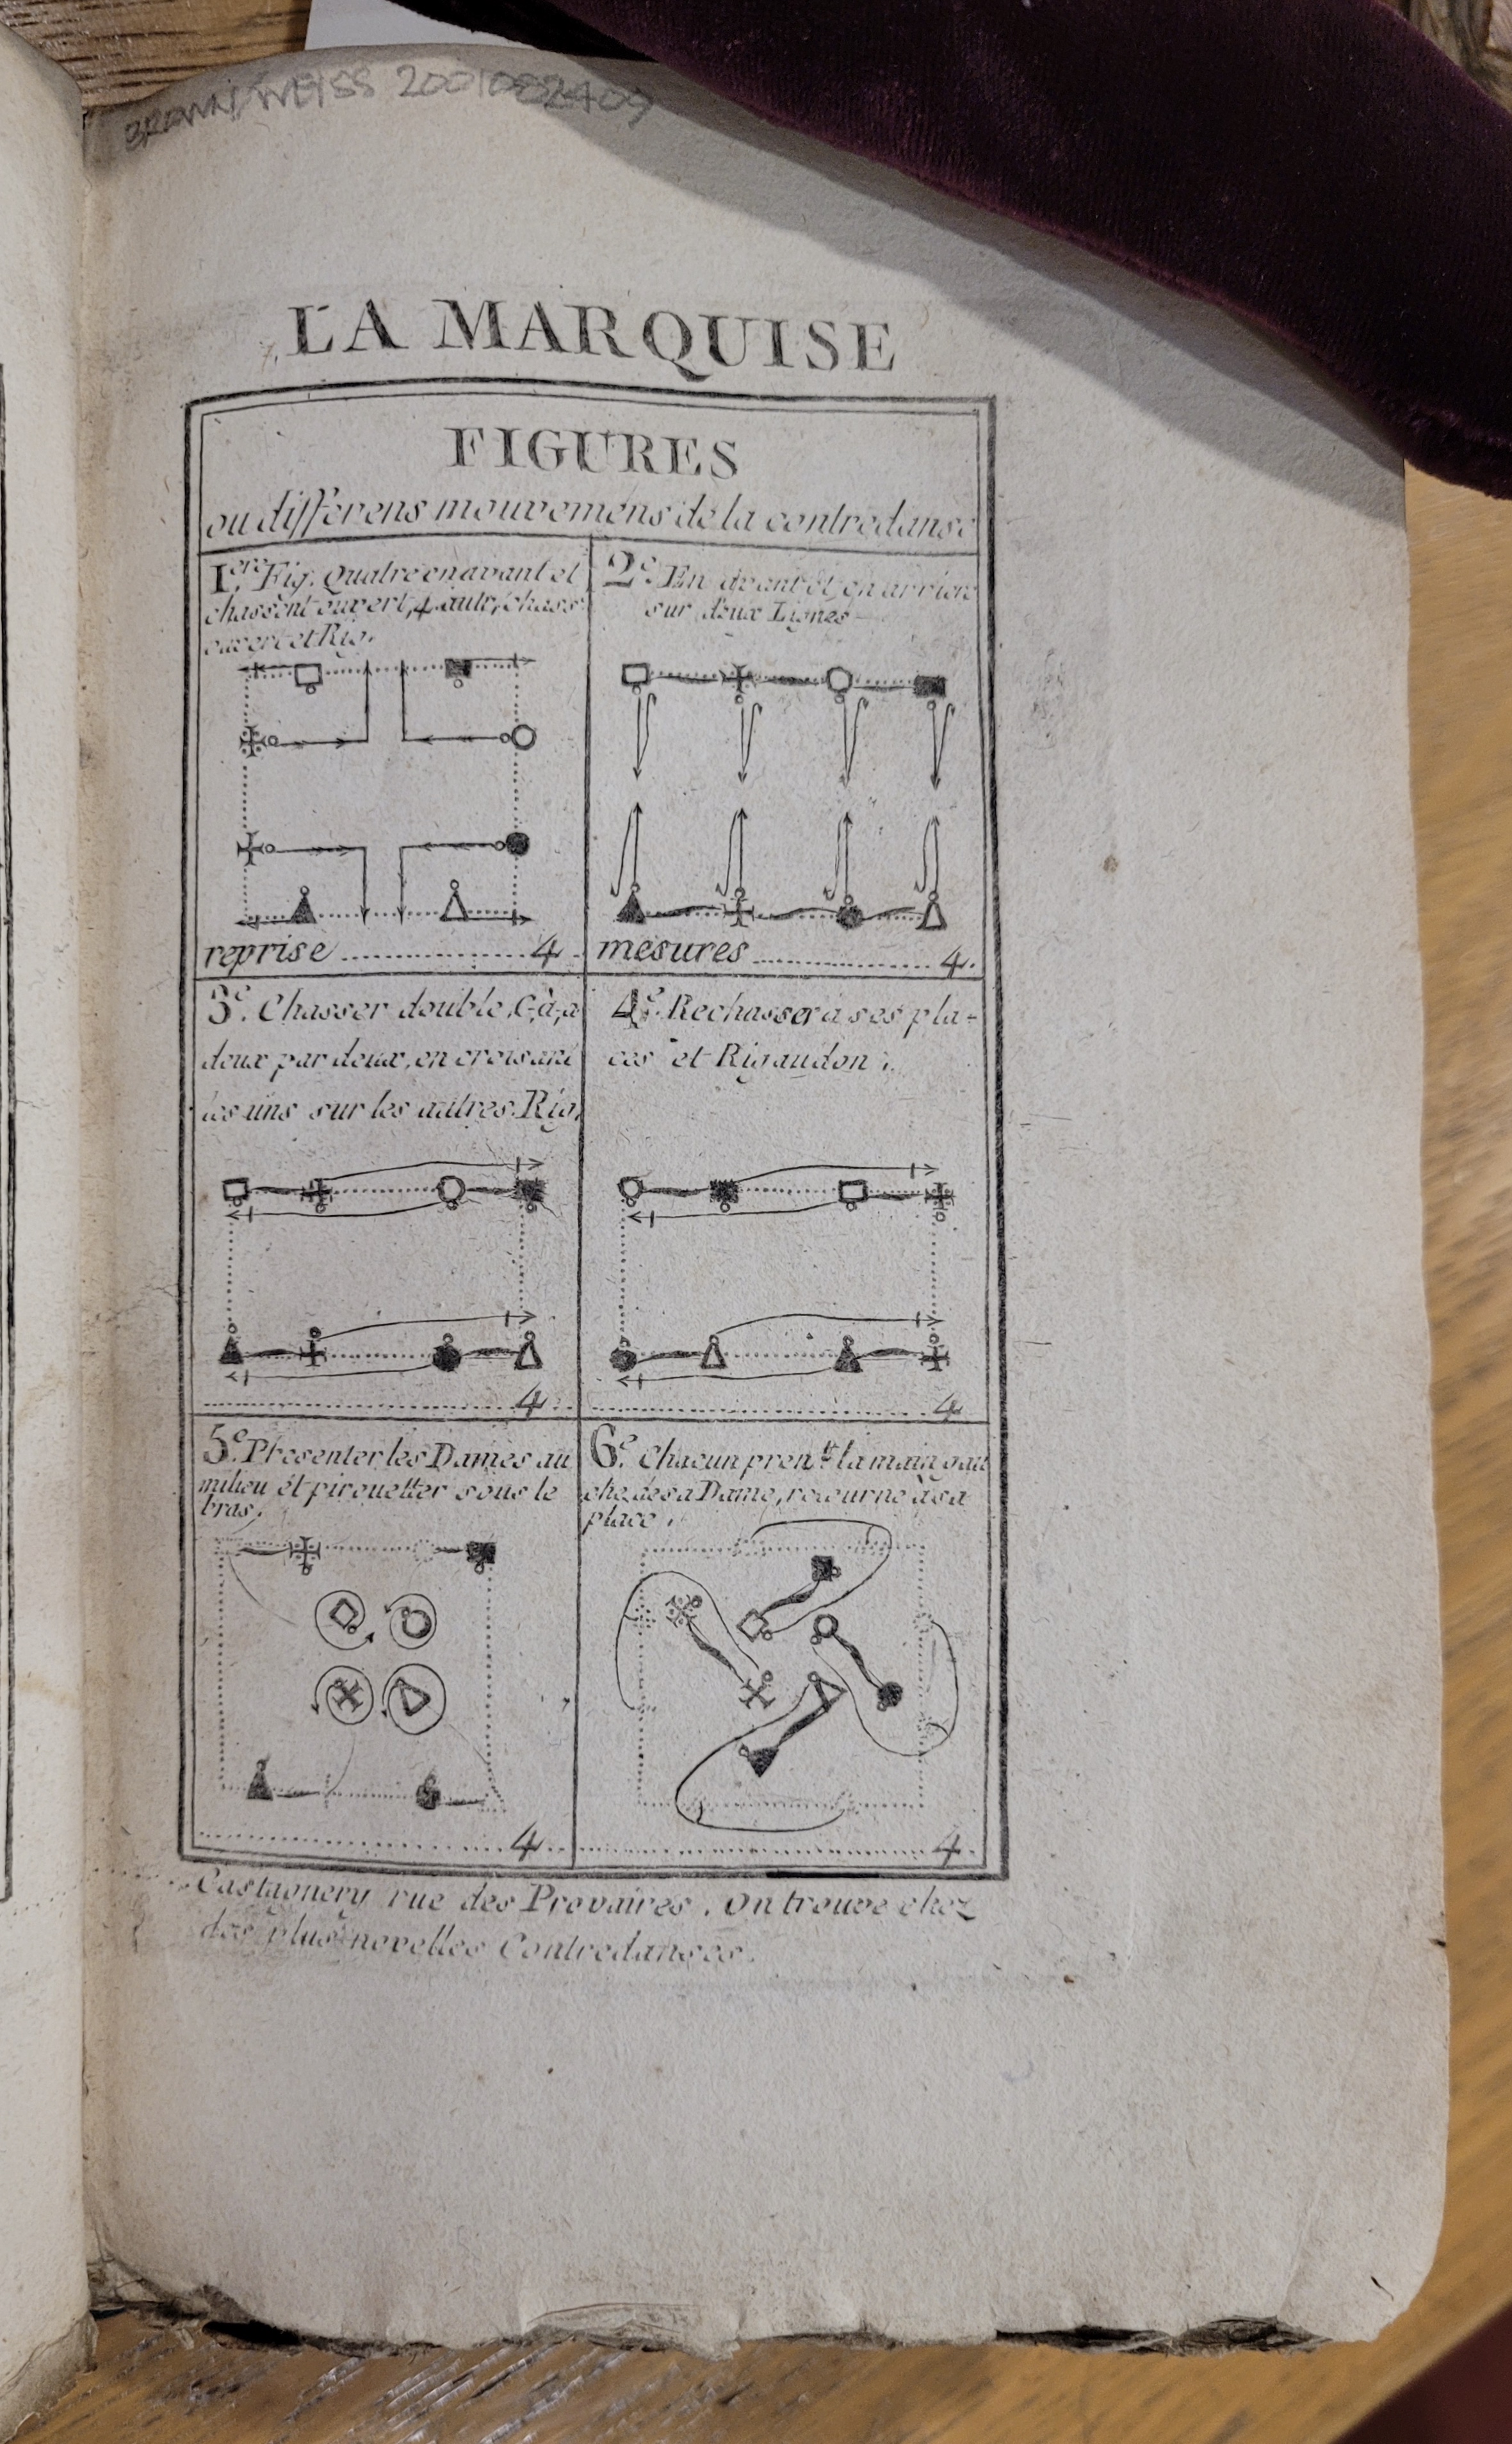 BROWN/WEISS 2001082409
LA MARQUISE
FIGURES
ou differens mouvemens de la contredanse
1ere Fig. Quatre en avant et
chassent ouvert, 4 autr, chass
ouvert et Rig.
reprise 4
2e. En avant et en arriere
sur deux Lignes
mesures 4.
3e. Chasser double, C, à, a
deux par deux, en croisant
les uns sur les autres. Rig.
4
4e. Rechasser a ses pla-
ces et Rigaudon.
4
5e. Presenter les Dames au
milieu et pirouetter sous le
bras.
4
6e. Chacun prent la main gau
che de sa Dame, retourne à sa
place.
4
Castagnery rue des Provaires. On trouve chez
des plus novelles Contredanses.